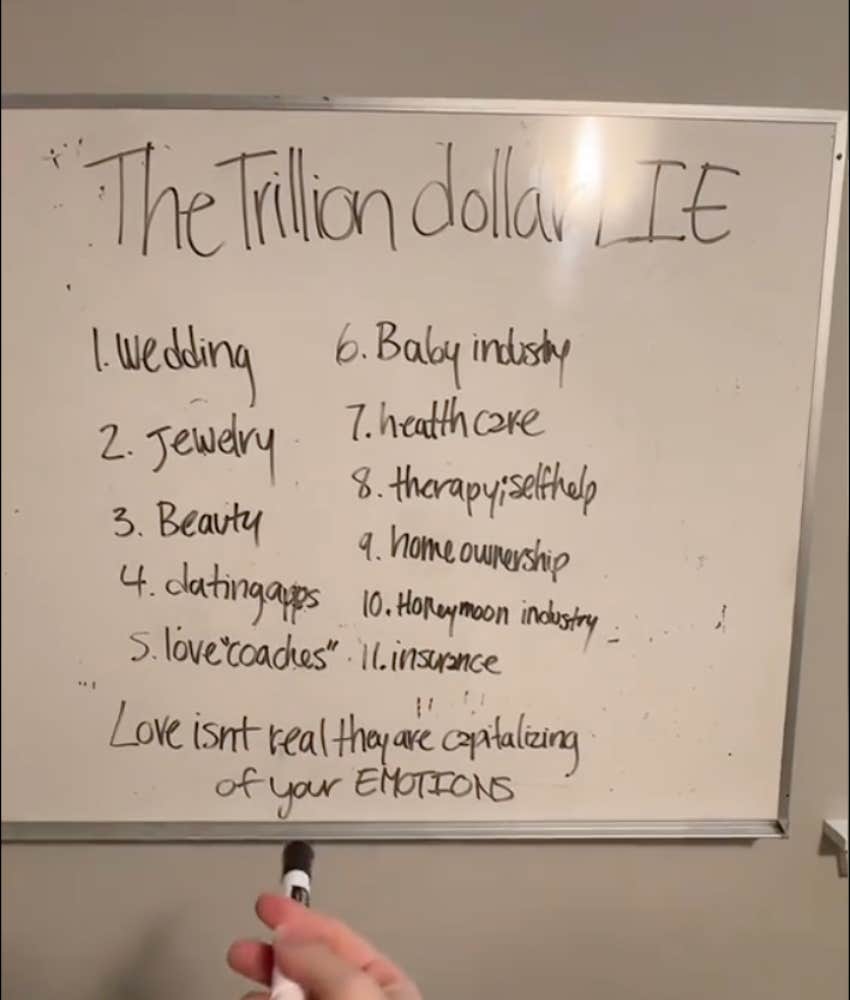 The Trillion dollar LIE
1. wedding
2. Jewelry
3. Beauty
4. dating apps
5. love "coaches"
6. Baby industry
7. health care
8. therapy; selfhelp
9. home ownership
10. Honeymoon industry
11. insurance
Love isnt real they are capitalizing
of your EMOTIONS